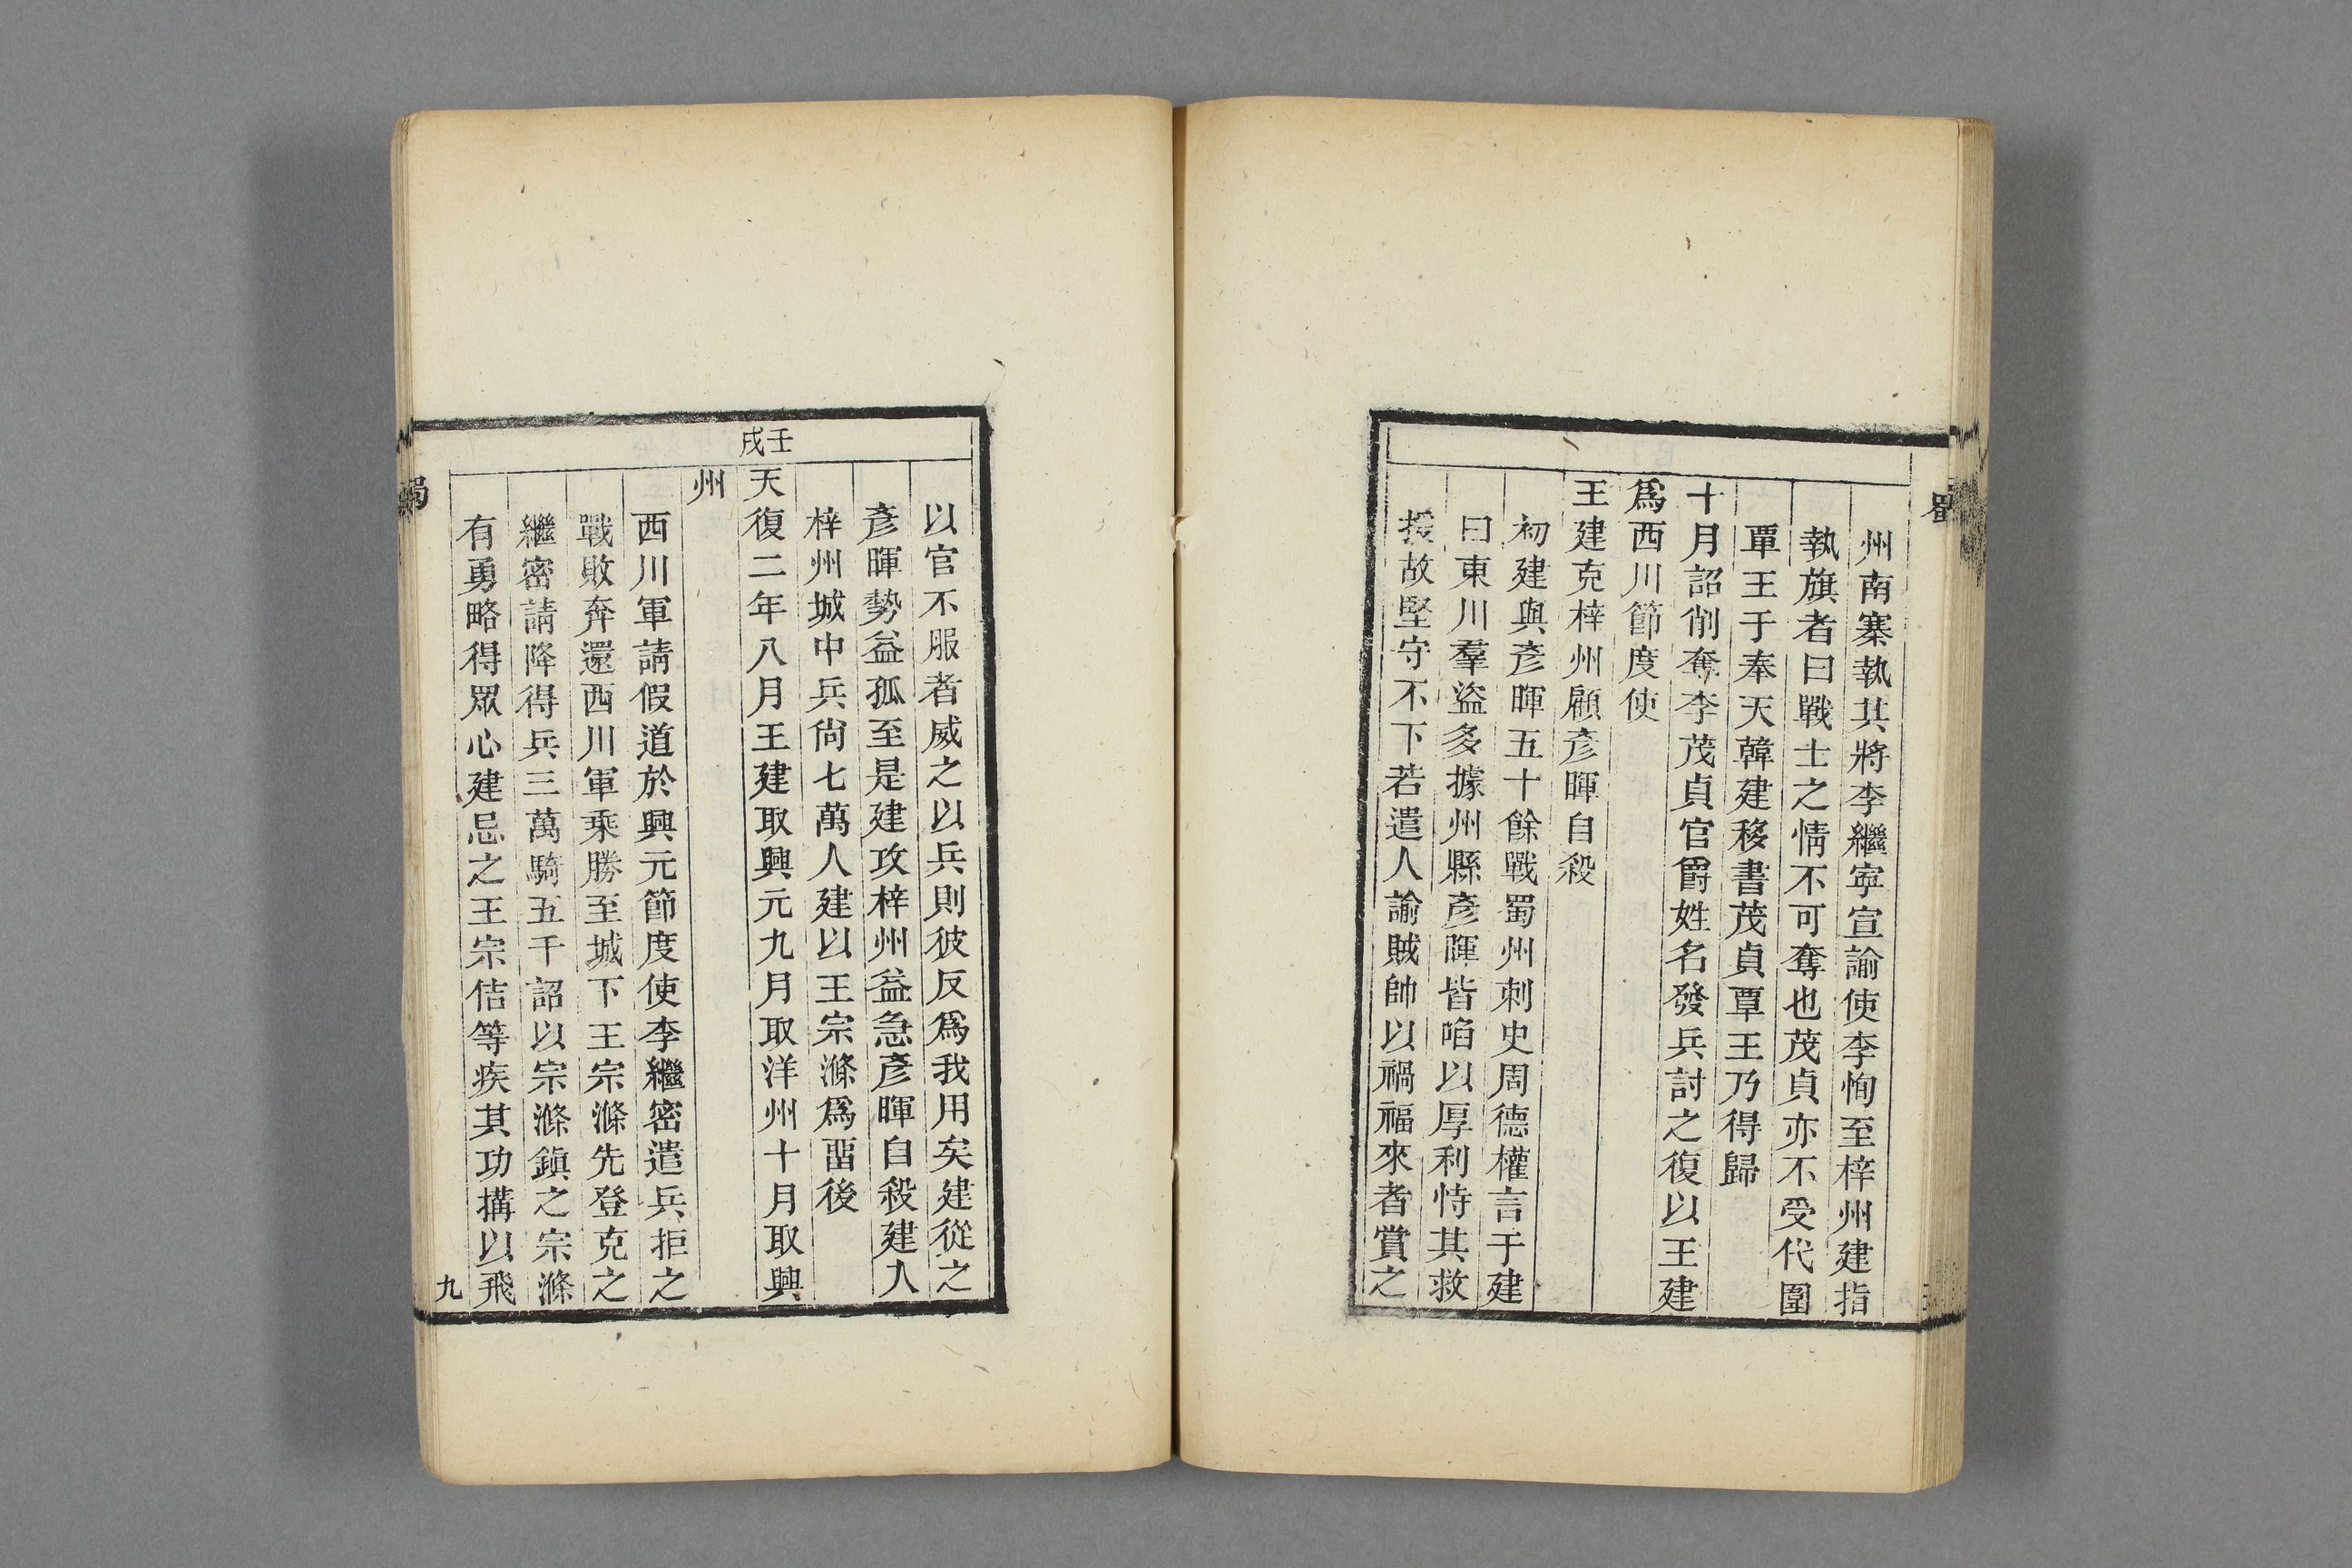 州南寨執其將李繼寜宣諭使李恂至梓州建指
執旗者曰戰士之情不可奪也茂貞亦不受代圍
覃王于奉天韓建移書茂貞覃王乃得歸
十月詔削奪李茂貞官爵姓名發兵討之復以王建
爲西川節度使
王建克梓州顧彥暉自殺
初建與彥暉五十餘戰蜀州刺史周德權言于建
曰東川羣盜多據州縣彥暉皆啗以厚利恃其救
援故堅守不下若遣人諭賊帥以禍福來者賞之
蜀
以官不服者威之以兵則彼反爲我用矣建從之
彥暉勢益孤至是建攻梓州益急彥暉自殺建入
梓州城中兵尙七萬人建以王宗滌爲畱後
壬戌
天復二年八月王建取興元九月取洋州十月取興
州
西川軍請假道於興元節度使李繼密遣兵拒之
戰敗奔還西川軍乘勝至城下王宗滌先登克之
繼密請降得兵三萬騎五千詔以宗滌鎮之宗滌
有勇略得眾心建忌之王宗佶等疾其功搆以飛
九